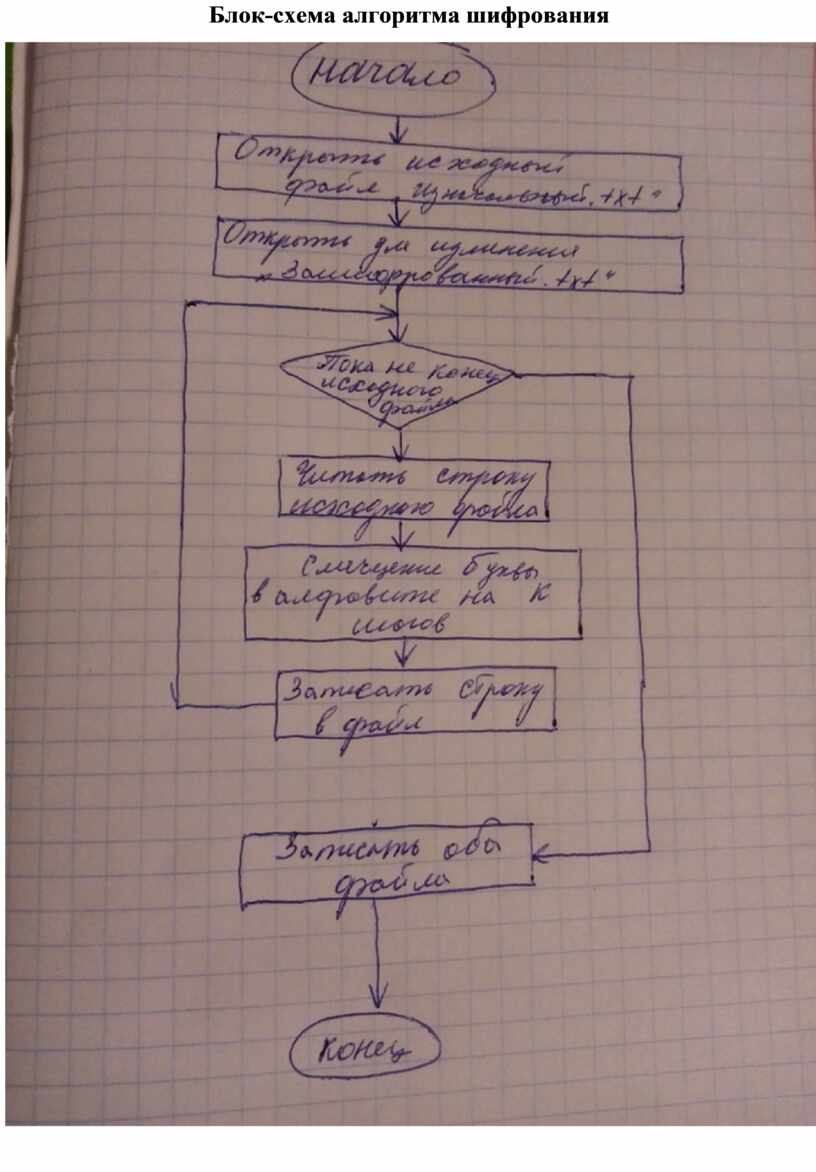 Блок-схема алгоритма шифрования
начало
Открыть исходный
файл „Изначальный.txt“
Открыть для изменения
„Зашифрованный.txt“
Пока не конец
исходного
файла
Читать строку
исходного файла
Смещение буквы
в алфавите на К
шагов
Записать строку
в файл
Записать оба
файла
конец